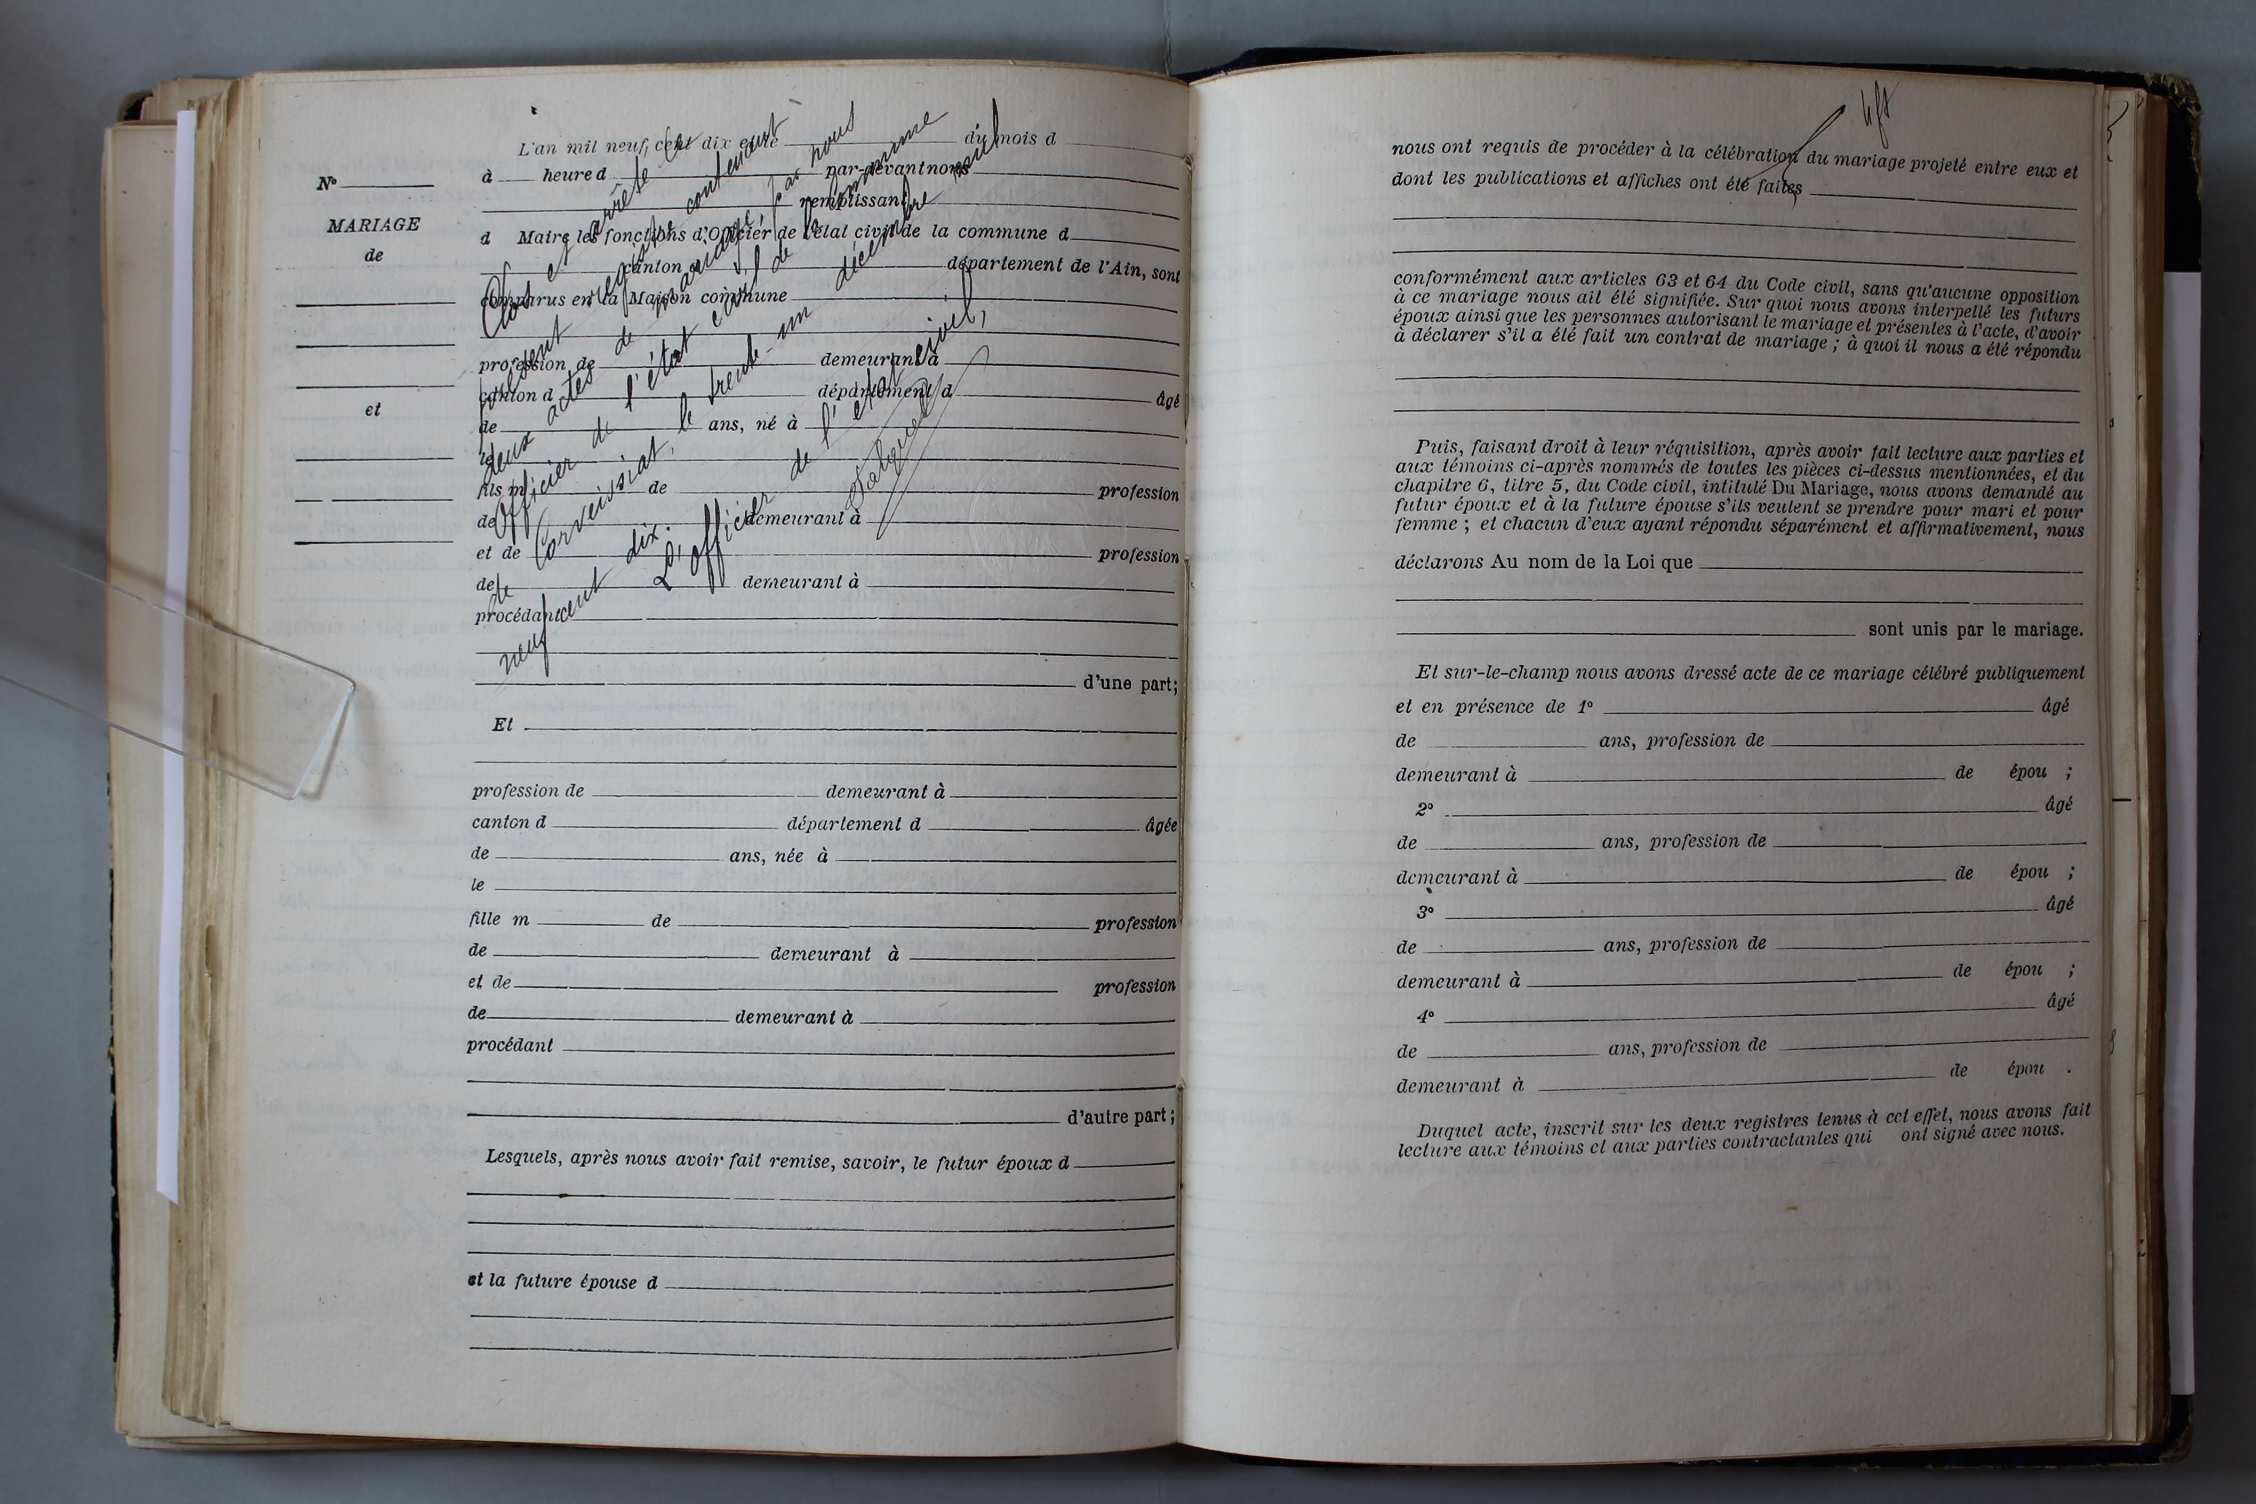 L'an mil neuf cent dix et le du mois d
à heure d par-devant nous
remplissant
d Maire les fonctions d'Officier de l'état civil de la commune d
canton d département de l'Ain, sont
comparus en la Maison commune
profession de demeurant à
canton d département d âgé
de ans, né à
le
fils m de profession
de demeurant à
et de profession
de demeurant à
procédant
d'une part;
Clos et arrêté le
présent registre contenant
deux actes de mariage, par nous
Officier de l'état civil de la commune
de Corveissiat, le trente-un décembre mil
neuf cent dix.
L'Officier de l'état civil,
N°
MARIAGE
de
et
Et
profession de demeurant à
canton d département d âgée
de ans, née à
le
fille m de profession
de demeurant à
et de profession
de demeurant à
procédant
d'autre part;
Lesquels, après nous avoir fait remise, savoir, le futur époux d
et la future épouse d
nous ont requis de procéder à la célébration du mariage projeté entre eux et
dont les publications et affiches ont été faites
conformément aux articles 63 et 64 du Code civil, sans qu'aucune opposition
à ce mariage nous ait été signifiée. Sur quoi nous avons interpellé les futurs
époux ainsi que les personnes autorisant le mariage et présentes à l'acte, d'avoir
à déclarer s'il a été fait un contrat de mariage; à quoi il nous a été répondu
Puis, faisant droit à leur réquisition, après avoir fait lecture aux parties et
aux témoins ci-après nommés de toutes les pièces ci-dessus mentionnées, et du
chapitre 6, titre 5, du Code civil, intitulé Du Mariage, nous avons demandé au
futur époux et à la future épouse s'ils veulent se prendre pour mari et pour
femme; et chacun d'eux ayant répondu séparément et affirmativement, nous
déclarons Au nom de la Loi que
sont unis par le mariage.
Et sur-le-champ nous avons dressé acte de ce mariage célébré publiquement
et en présence de 1° âgé
de ans, profession de
demeurant à de épou ;
2° âgé
de ans, profession de
demeurant à de épou ;
3° âgé
de ans, profession de
demeurant à de épou ;
4° âgé
de ans, profession de
demeurant à de épou .
Duquel acte, inscrit sur les deux registres tenus à cet effet, nous avons fait
lecture aux témoins et aux parties contractantes qui ont signé avec nous.